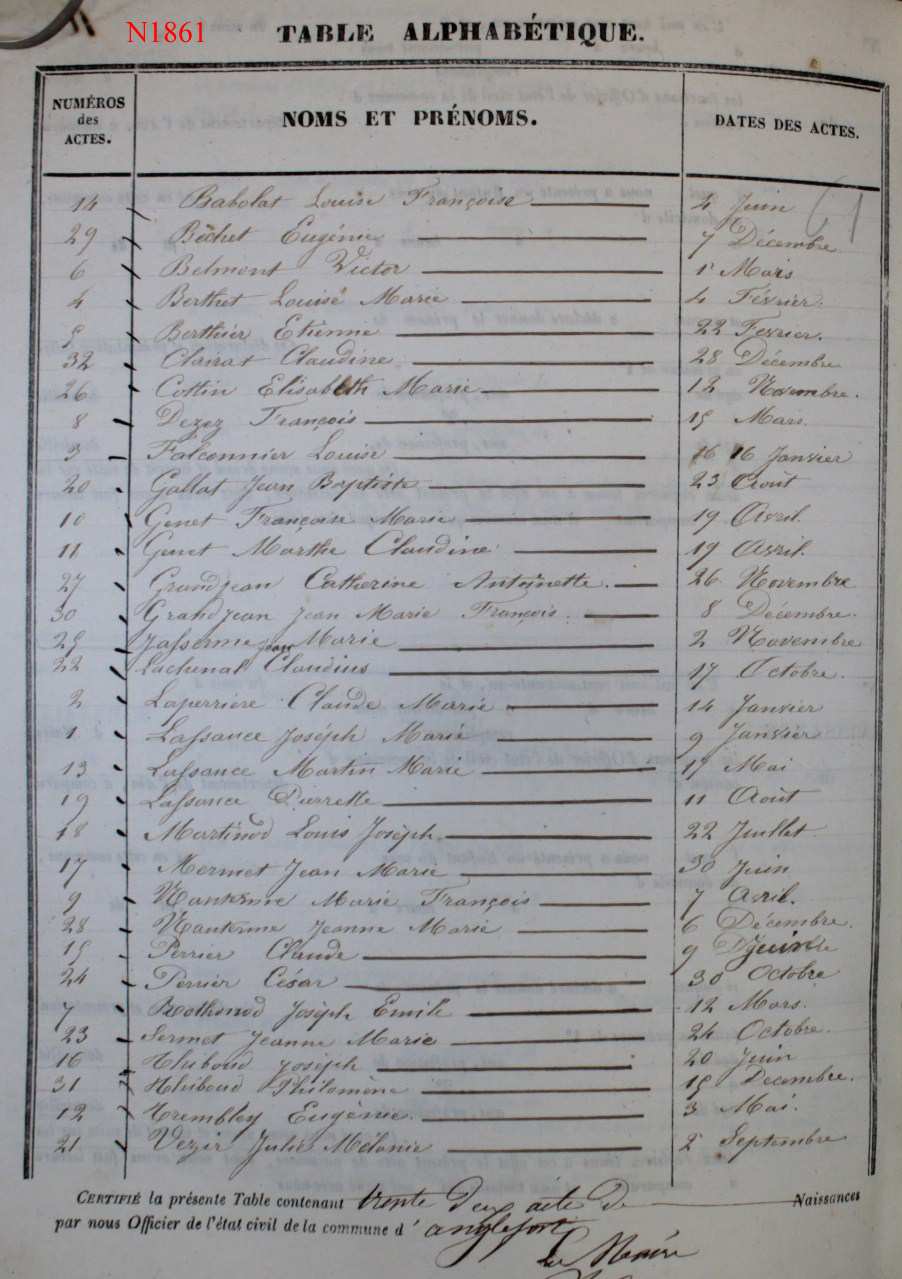 N1861
TABLE ALPHABÉTIQUE.
NUMÉROS des ACTES. NOMS ET PRÉNOMS. DATES DES ACTES.
14 Babolat Louise Françoise 4 Juin
29 Béchet Eugénie 7 Décembre
6 Belmont Victor 1r Mars
4 Berthet Louise Marie 4 Février.
5 Berthier Etienne 22 Février.
32 Clairat Claudine 28 Décembre
26 Cottin Elisabeth Marie 12 Novembre.
8 Dezez François 15 Mars.
3 Falconnier Louise 16 16 Janvier
20 Gallat Jean Baptiste 23 Août
10 Genet Françoise Marie 19 Avril.
11 Genet Marthe Claudine 19 Avril.
27 Grandjean Catherine Antoinette. 26 Novembre
30 Grandjean Jean Marie François. 8 Décembre.
25 Jasserme Jean Marie 2 Novembre
22 Lachenal Claudius 17 Octobre.
2 Laperrière Claude Marie 14 Janvier
1 Lassance Joséph Marie 9 Janvier
13 Lassance Martin Marie 17 Mai
19 Lassance Pierrette 11 Août
18 Martinod Louis Joséph 22 Juillet
17 Mermet Jean Marie 30 Juin
9 Nanterme Marie François 7 Avril.
28 Nanterme Jeanne Marie 6 Décembre.
15 Perrier Claude 9 Juin
24 Perrier César 30 Octobre
7 Rothonod Joséph Emile 12 Mars.
23 Sermet Jeanne Marie 24 Octobre.
16 Thiboud Joséph 20 Juin
31 Thiboud Philomène 15 Décembre.
12 Trembley Eugénie. 3 Mai.
21 Vezir Julie Mélanie 2 Septembre
CERTIFIÉ la présente Table contenant trente deux acte de Naissances
par nous Officier de l'état civil de la commune d' anglefort
Le Maire